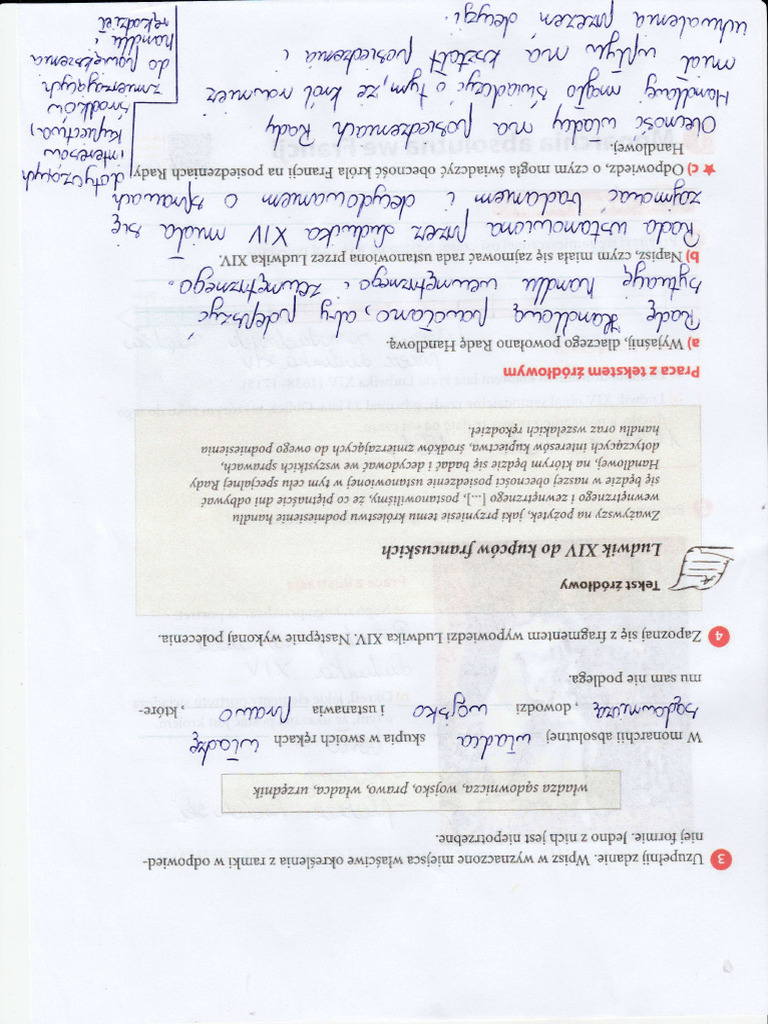 3 Uzupełnij zdanie. Wpisz w wyznaczone miejsca właściwe określenia z ramki w odpowied-
niej formie. Jedno z nich jest niepotrzebne.
władza sądownicza, wojsko, prawo, władca, urzędnik
W monarchii absolutnej władca skupia w swoich rękach władzę
sądowniczą, dowodzi wojsko i ustanawia prawo, które-
mu sam nie podlega.
4 Zapoznaj się z fragmentem wypowiedzi Ludwika XIV. Następnie wykonaj polecenia.
Tekst źródłowy
Ludwik XIV do kupców francuskich
Zważywszy na pożytek, jaki przyniesie temu królestwu podniesienie handlu
wewnętrznego i zewnętrznego [...], postanowiliśmy, że co piętnaście dni odbywać
się będzie w naszej obecności posiedzenie ustanowionej w tym celu specjalnej Rady
Handlowej, na którym będzie się badać i decydować we wszystkich sprawach,
dotyczących interesów kupiectwa, środków zmierzających do owego podniesienia
handlu oraz wszelakich rękodzieł.
Praca z tekstem źródłowym
a) Wyjaśnij, dlaczego powołano Radę Handlową.
Radę Handlową powołano, aby polepszyć
sytuację handlu wewnętrznego i zewnętrznego.
b) Napisz, czym miała się zajmować rada ustanowiona przez Ludwika XIV.
Rada ustanowiona przez Ludwika XIV miała się
zajmować badaniem i decydowaniem o sprawach
dotyczących
interesów
kupiectwa,
środków
zmierzających
do powiększenia
handlu i
rękodzieł
c) Odpowiedz, o czym mogła świadczyć obecność króla Francji na posiedzeniach Rady
Handlowej.
Obecność władcy na posiedzeniach Rady
Handlowej mogło świadczyć o tym, że król również
miał wpływ na kształt posiedzenia i
uchwalenia przezeń decyzji.